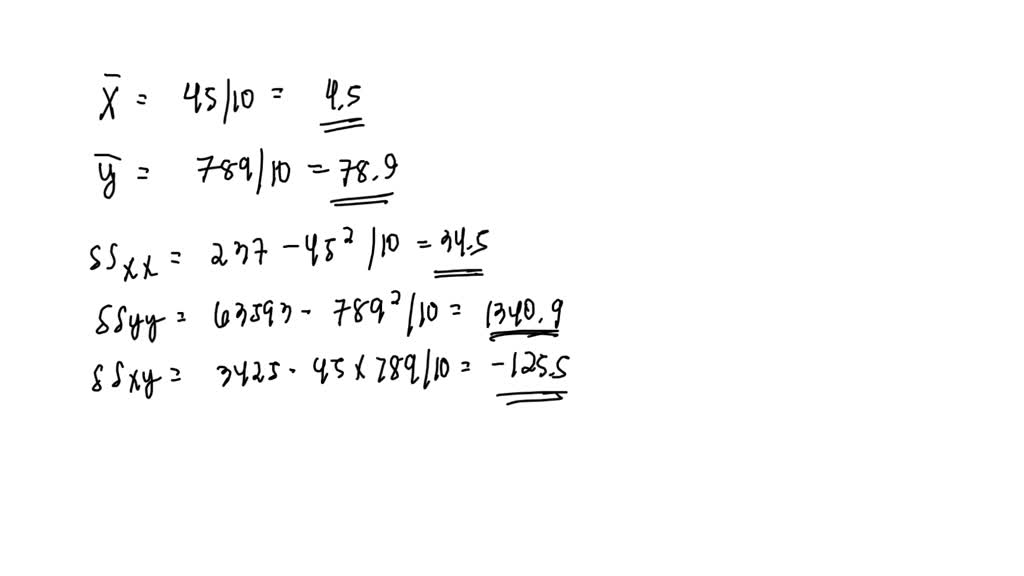 x̄ = 45/10 = 4.5
ȳ = 789/10 = 78.9
SSxx = 237 - 45²/10 = 34.5
SSyy = 63593 - 789²/10 = 1340.9
SSxy = 3425 - 45 x 789/10 = -125.5